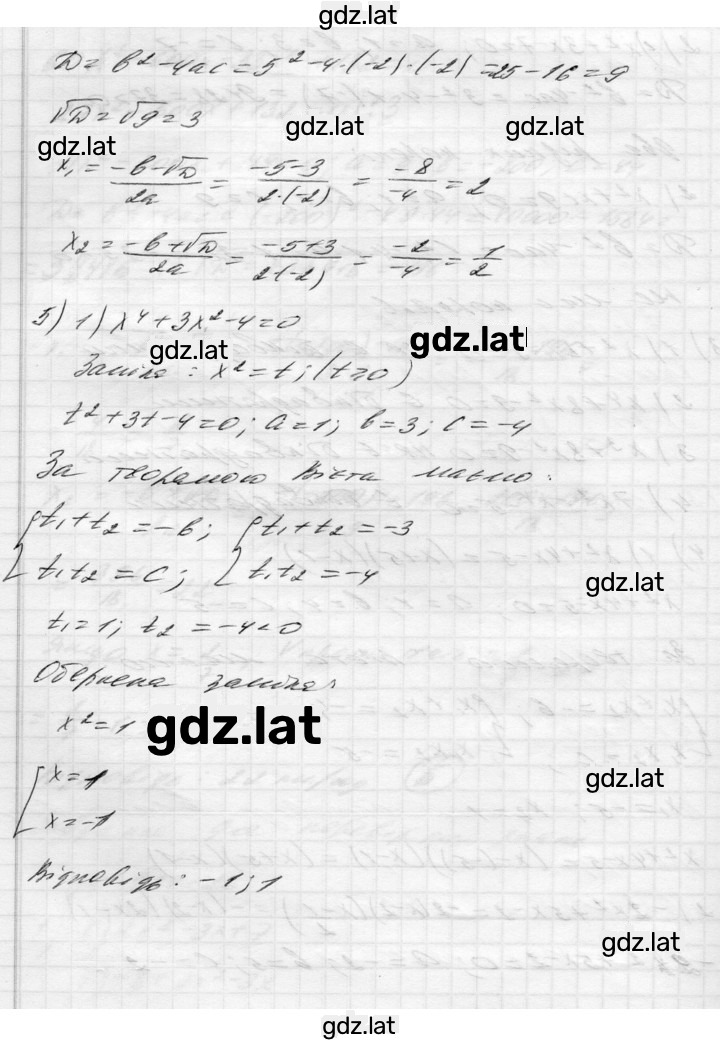 gdz.lat
D = b² - 4ac = 5² - 4·(-2)·(-2) = 25 - 16 = 9
√D = √9 = 3
gdz.lat gdz.lat
gdz.lat
x₁ = (-b - √D)/(2a) = (-5-3)/(2·(-2)) = (-8)/(-4) = 2
x₂ = (-b + √D)/(2a) = (-5+3)/(2·(-2)) = (-2)/(-4) = 1/2
5) 1) x⁴ + 3x² - 4 = 0
gdz.lat
gdz.lat
Заміна: x² = t; (t ≥ 0)
t² + 3t - 4 = 0; a = 1; b = 3; c = -4
За теоремою Вієта маємо:
{ t₁ + t₂ = -b; { t₁ + t₂ = -3
t₁t₂ = c; t₁t₂ = -4
gdz.lat
t₁ = 1; t₂ = -4 < 0
Обернена заміна:
x² = 1
gdz.lat
[ x = 1
gdz.lat
x = -1
Відповідь: -1; 1
gdz.lat
gdz.lat